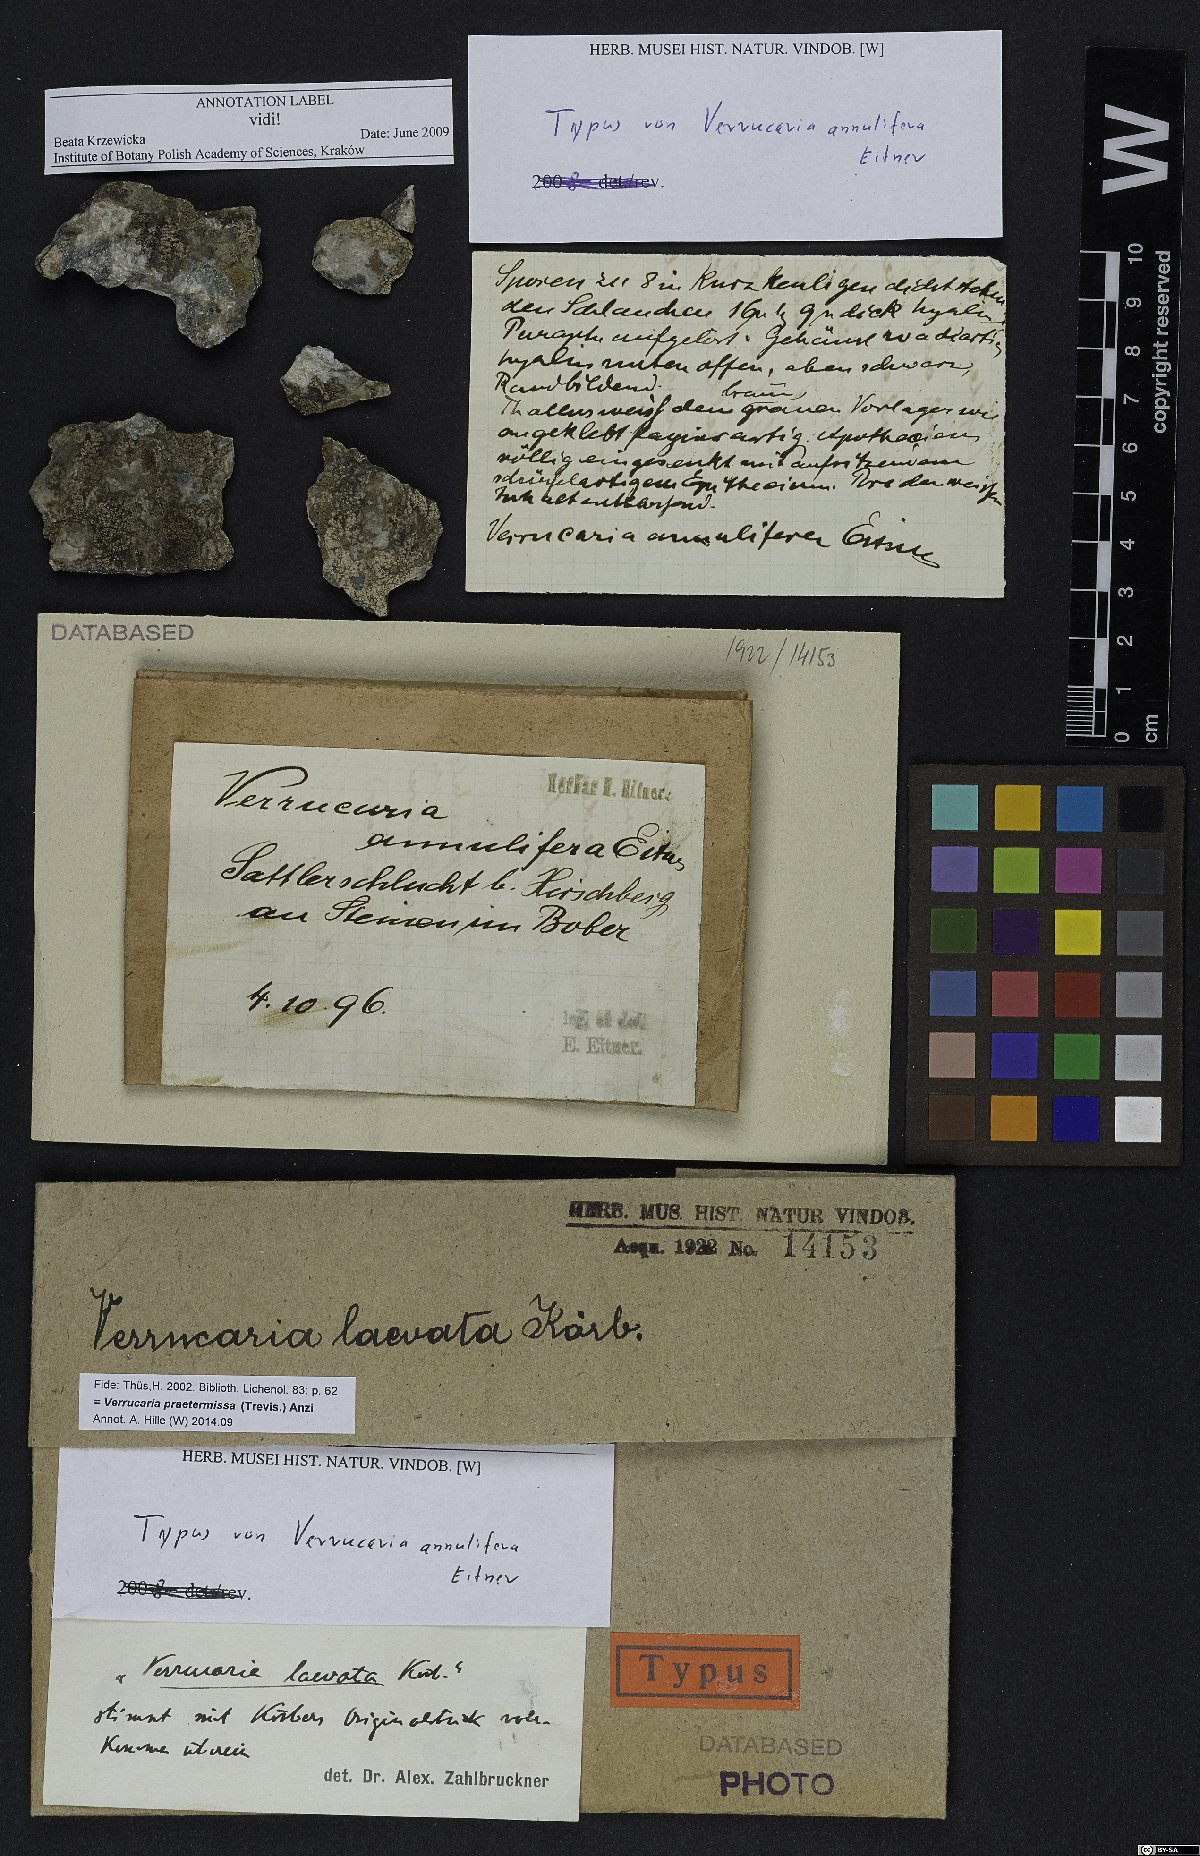 ANNOTATION LABEL
vidi!
Beata Krzewicka
Date: June 2009
Institute of Botany Polish Academy of Sciences, Kraków
HERB. MUSEI HIST. NATUR. VINDOB. [W]
Typus von Verrucaria annulifera
Eitner
2008 det/rev.
Sporen zu 8 in kurz keuligen dicht stehen
den Schläuchen 16µ l, 9µ dick hyalin
Paraph. aufgelöst. Gehäuse radiärtig
hyalin unten offen, oben schwarz,
Randbildend.
braun
Thallus weiss dem grauen Vorlager wie
angeklebt papierartig. Apothecien
völlig eingesenkt mit aufsitzendem
schüsselartigem Epithecium. den weissen
Inhalt entleerend.
Verrucaria annulifera Eitner
W
copyright reserved
0 1 2 3 4 5 6 7 8 9 10
cm
DATABASED
1922/14153
Herbar E. Eitner.
Verrucaria
annulifera Eitner
Sattlerschlucht b. Hirschberg
an Steinen im Bober
4.10.96.
legi et det.
E. Eitner.
HERB. MUS. HIST. NATUR VINDOB.
Acqu. 1922 No. 14153
Verrucaria laevata Körb.
Fide: Thüs,H. 2002. Biblioth. Lichenol. 83: p. 62
= Verrucaria praetermissa (Trevis.) Anzi
Annot. A. Hille (W) 2014.09
HERB. MUSEI HIST. NATUR. VINDOB. [W]
Typus von Verrucaria annulifera
Eitner
2008 det/rev.
„Verrucaria laevata Körb."
stimmt mit Körbers Originalstück voll-
kommen überein
det. Dr. Alex. Zahlbruckner
Typus
DATABASED
PHOTO
CC BY-SA